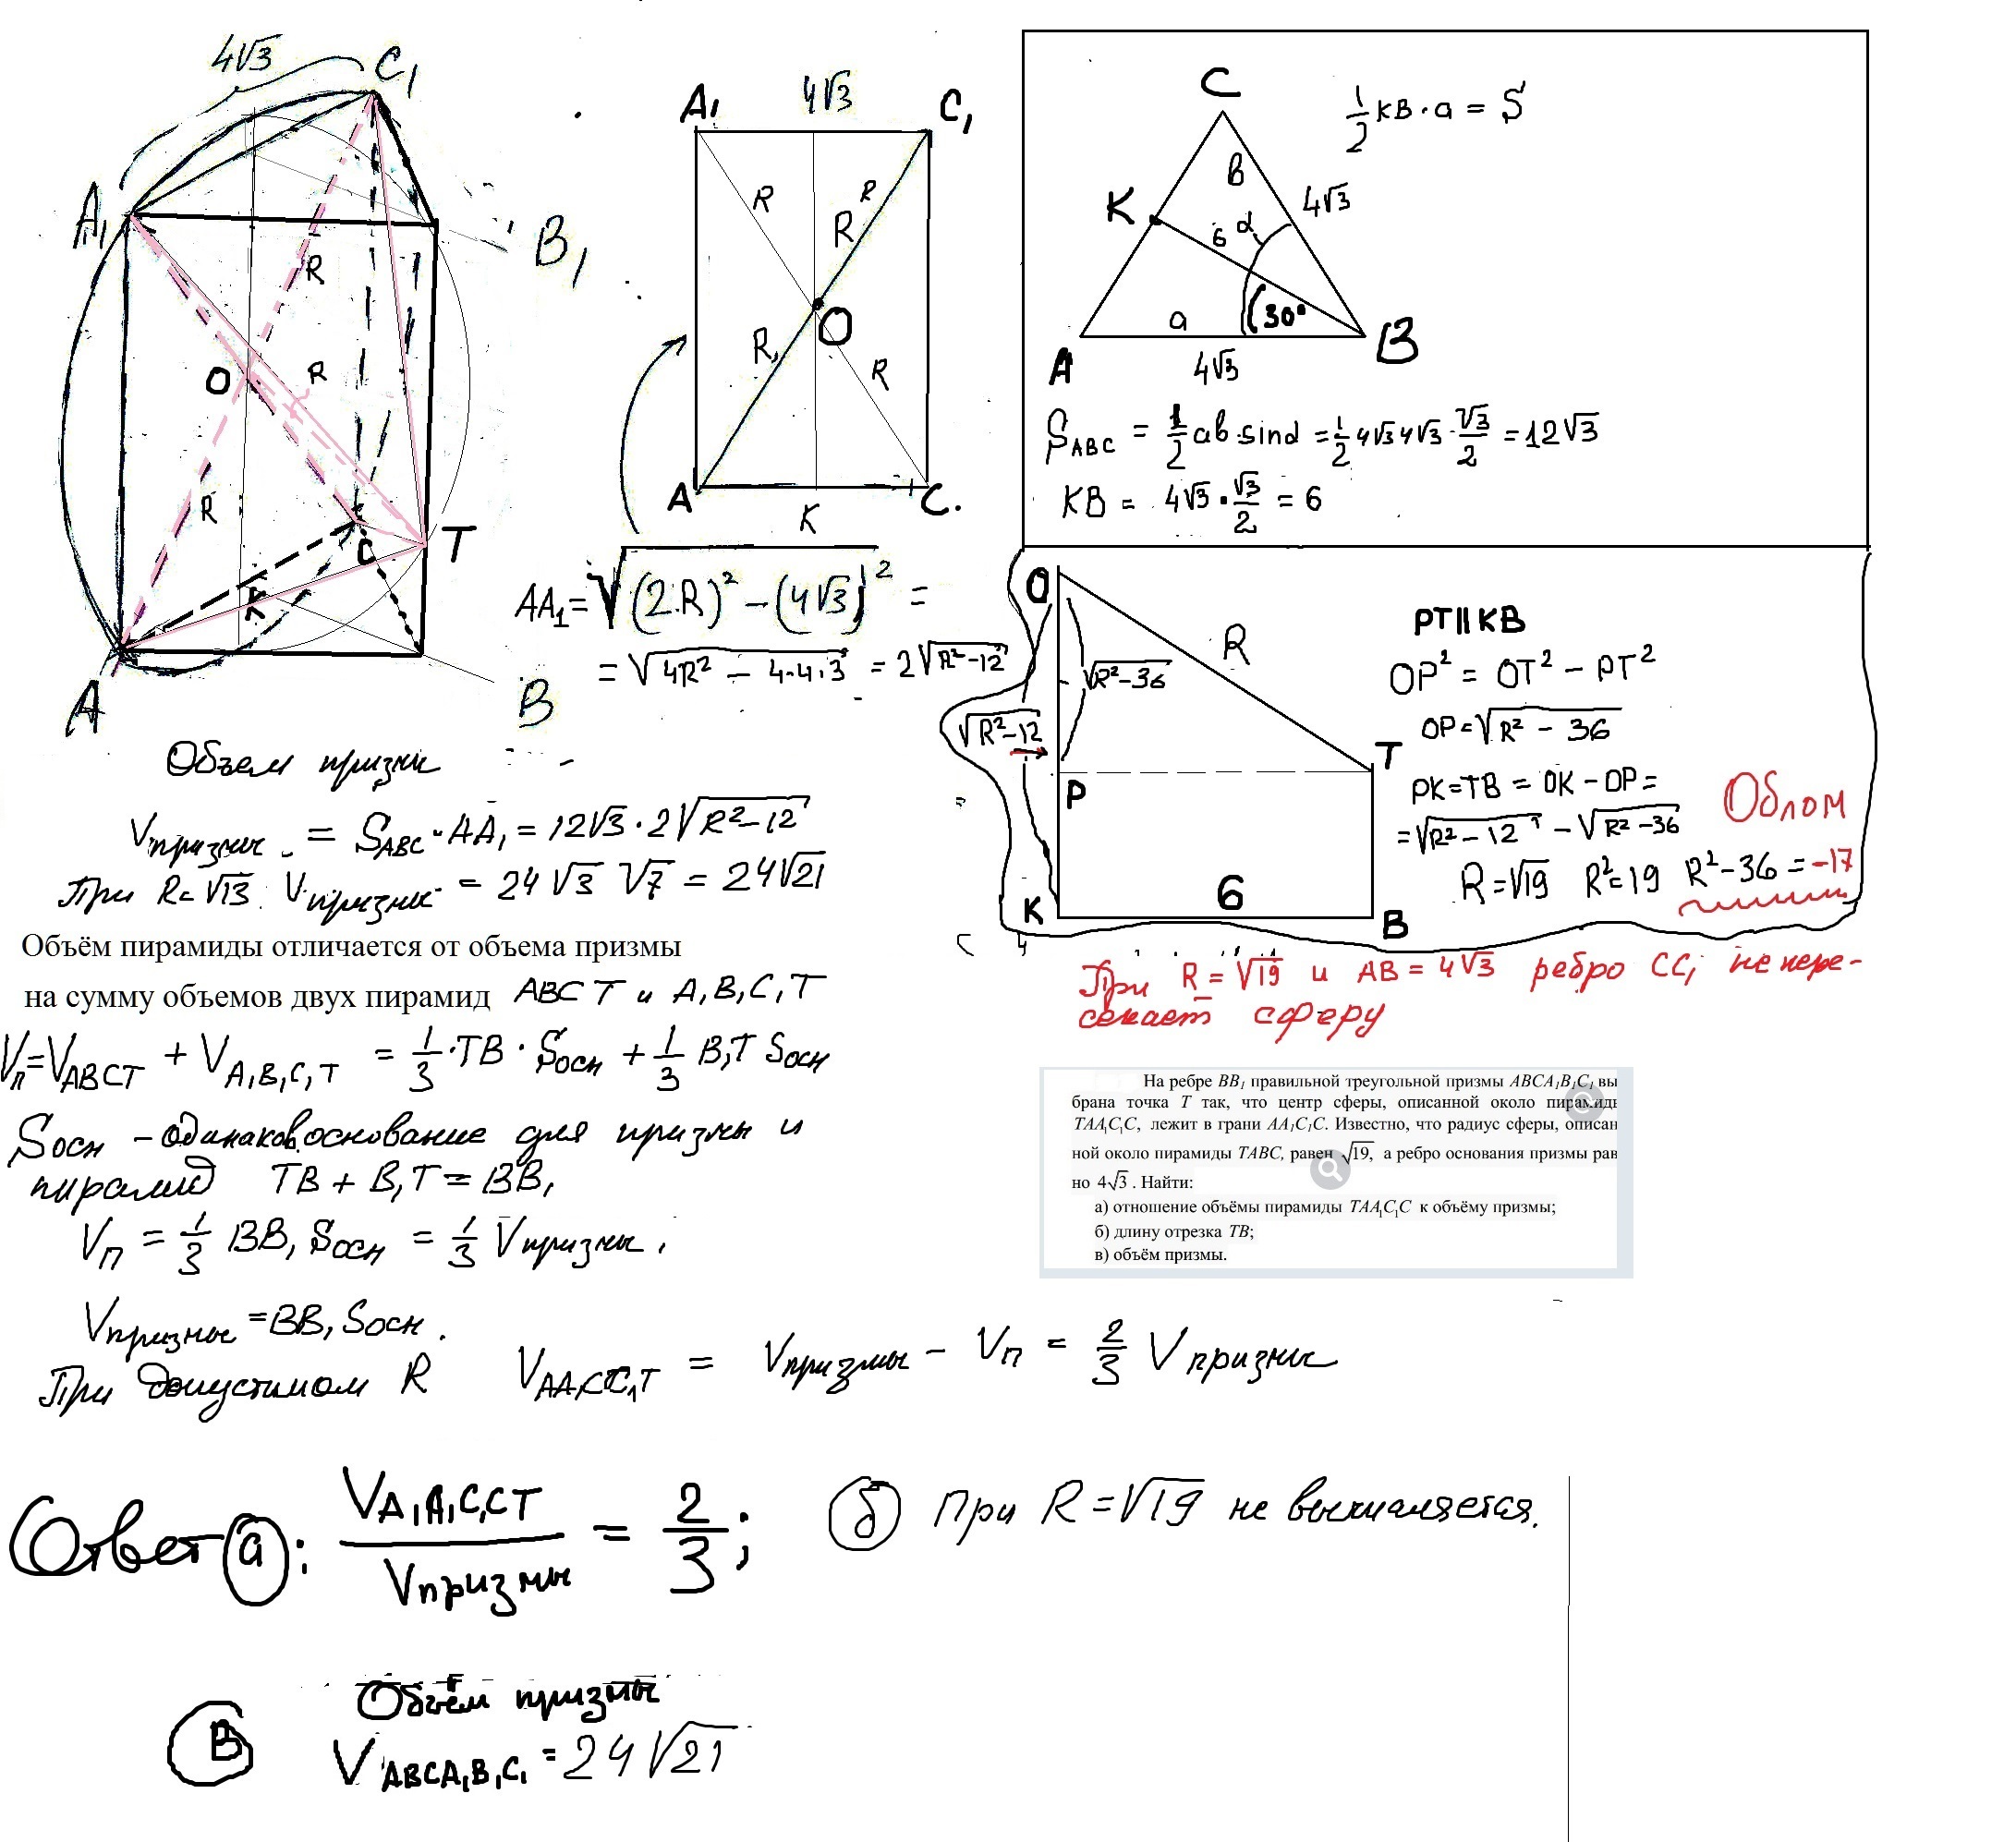 4√3
C₁
A₁
B₁
R
O
R
R
T
C
K
A
B
A₁
4√3
C₁
R
R
R
O
R
R
A
K
C.
AA₁ = √(2.R)² − (4√3)² =
= √4R² − 4·4·3 = 2√R²−12
C
1/2 KB·a = S
в
K
4√3
6
α
30°
a
A
4√3
B
S_ABC = 1/2 ab·sinα = 1/2 4√3 4√3 · √3/2 = 12√3
KB = 4√3 · √3/2 = 6
O
R
√R²−36
√R²−12
P
T
K
6
B
PT∥KB
OP² = OT² − PT²
OP = √R² − 36
PK = TB = OK − OP =
= √R²−12 − √R²−36
Облом
R = √19 R² = 19 R²−36 = −17
При R = √19 и AB = 4√3 ребро CC₁ не пере-
секает сферу
Объем призмы
Vпризмы = S_ABC · AA₁ = 12√3 · 2√R²−12
При R = √13. Vпризмы = 24√3 √7 = 24√21
Объём пирамиды отличается от объема призмы
на сумму объемов двух пирамид ABCT и A₁B₁C₁T
Vп = V_ABCT + V_A₁B₁C₁T = 1/3 · TB · Sосн + 1/3 B₁T Sосн
Sосн – одинаков. основание для призмы и
пирамид TB + B₁T = BB₁
Vп = 1/3 BB₁ Sосн = 1/3 Vпризмы.
Vпризмы = BB₁ Sосн.
При допустимом R V_AA₁CC₁T = Vпризмы − Vп = 2/3 Vпризмы
На ребре BB₁ правильной треугольной призмы ABCA₁B₁C₁ вы
брана точка T так, что центр сферы, описанной около пирамиды
TAA₁C₁C, лежит в грани AA₁C₁C. Известно, что радиус сферы, описан
ной около пирамиды TABC, равен √19, а ребро основания призмы рав
но 4√3. Найти:
а) отношение объёмы пирамиды TAA₁C₁C к объёму призмы;
б) длину отрезка TB;
в) объём призмы.
Ответ а: V_A₁A₁C₁CT / Vпризмы = 2/3;
б При R = √19 не вычисляется.
В Объём призмы
V_ABCA₁B₁C₁ = 24√21